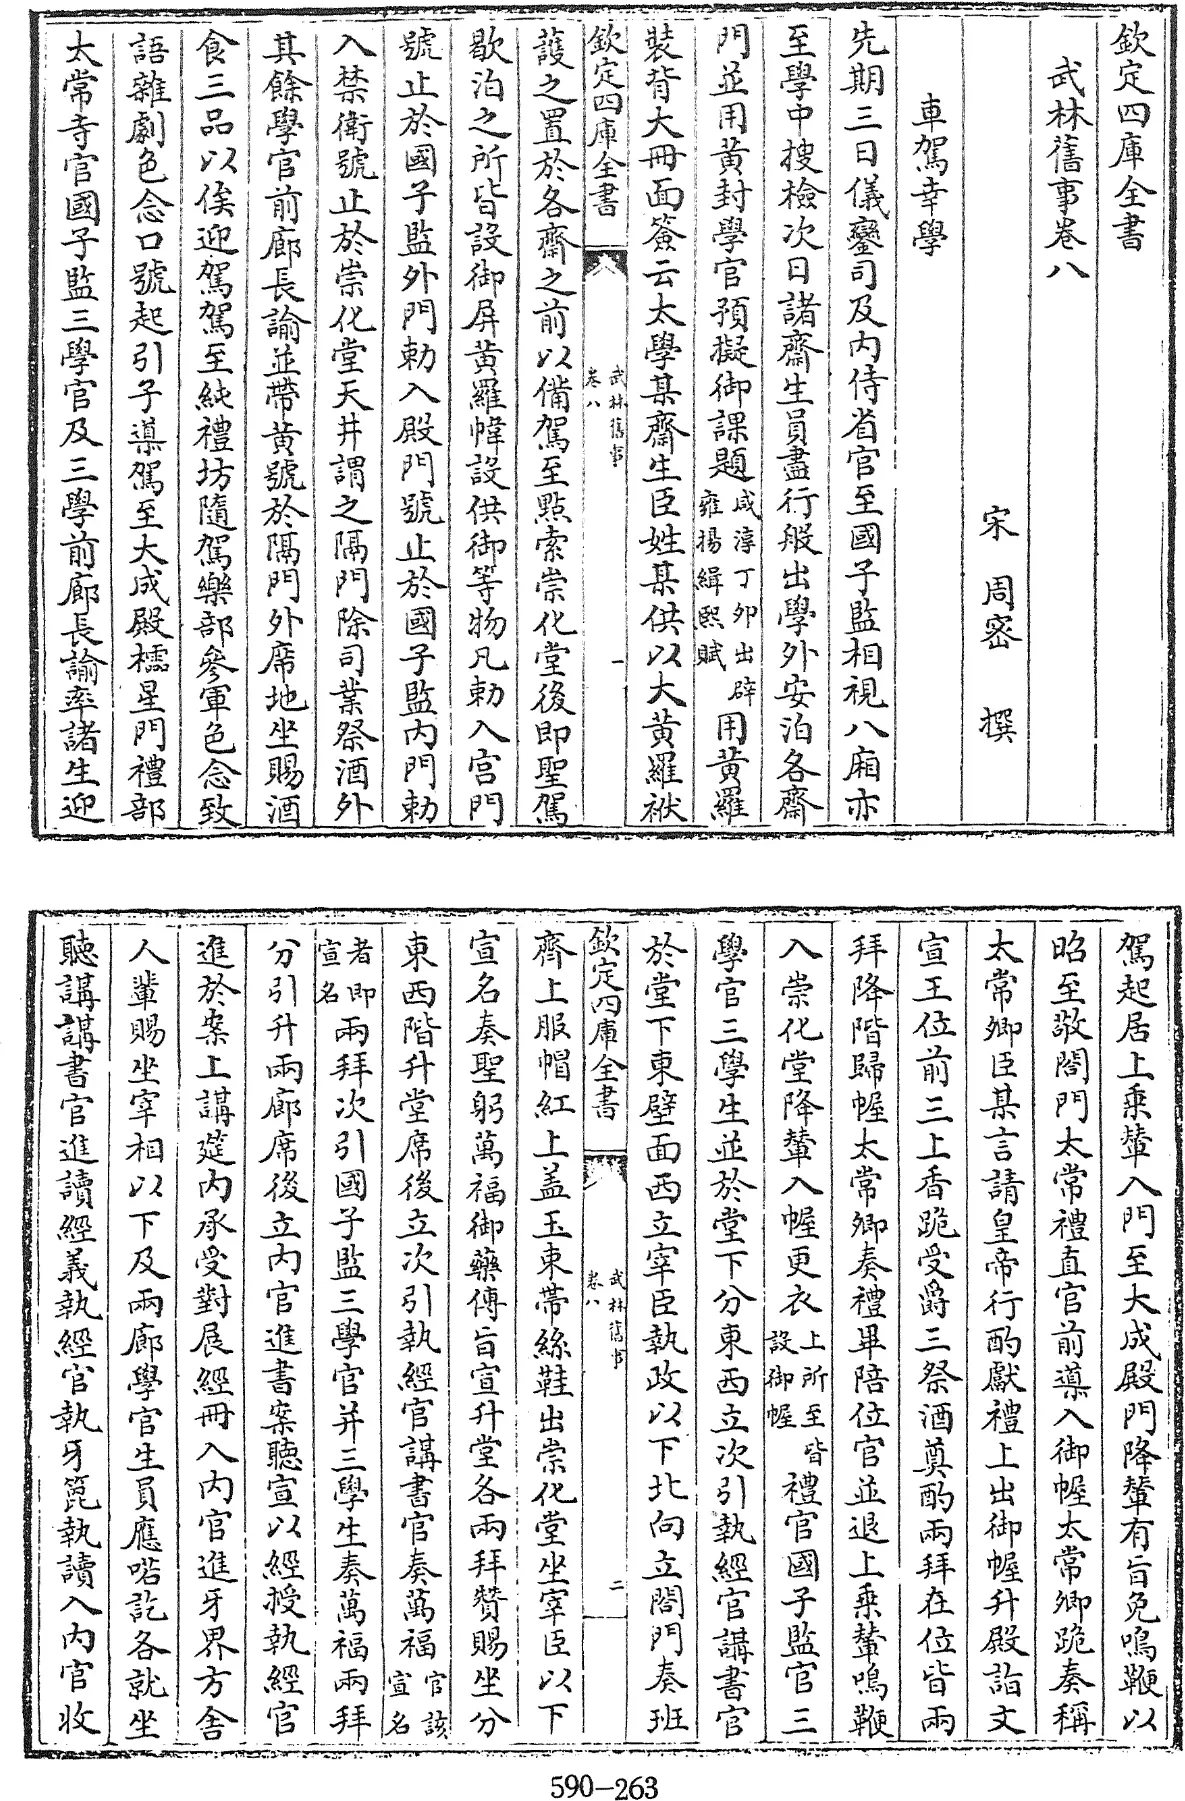 欽定四庫全書
武林舊事卷八
宋 周密 撰
車駕幸學
先期三日儀鑾司及内侍省官至國子監相視八廂亦
至學中搜檢次日諸齋生員盡行般出學外安泊各齋
門並用黄封學官預擬御課題咸淳丁卯出辟雍揚緝熙賦用黄羅
裝背大冊面簽云太學某齋生臣姓某供以大黄羅袱
欽定四庫全書
武林舊事
卷八
一
護之置於各齋之前以備駕至點索崇化堂後即聖駕
歇泊之所皆設御屏黄羅幃設供御等物凡勅入宫門
號止於國子監外門勅入殿門號止於國子監内門勅
入禁衛號止於崇化堂天井謂之隔門除司業祭酒外
其餘學官前廊長諭並帶黄號於隔門外席地坐賜酒
食三品以俟迎駕駕至純禮坊隨駕樂部參軍色念致
語雜劇色念口號起引子導駕至大成殿櫺星門禮部
太常寺官國子監三學官及三學前廊長諭率諸生迎
駕起居上乗輦入門至大成殿門降輦有旨免鳴鞭以
昭至敬閤門太常禮直官前導入御幄太常卿跪奏稱
太常卿臣某言請皇帝行酌獻禮上出御幄升殿詣文
宣王位前三上香跪受爵三祭酒奠酌兩拜在位皆兩
拜降階歸幄太常卿奏禮畢陪位官並退上乗輦鳴鞭
入崇化堂降輦入幄更衣上所至皆設御幄禮官國子監官三
學官三學生並於堂下分東西立次引執經官講書官
於堂下東壁面西立宰臣執政以下北向立閤門奏班
欽定四庫全書
武林舊事
卷八
二
齊上服帽紅上盖玉束帶絲鞋出崇化堂坐宰臣以下
宣名奏聖躬萬福御藥傳旨宣升堂各兩拜贊賜坐分
東西階升堂席後立次引執經官講書官奏萬福官該宣名
者即宣名兩拜次引國子監三學官并三學生奏萬福兩拜
分引升兩廊席後立内官進書案聽宣以經授執經官
進於案上講筵内承受對展經冊入内官進牙界方舍
人輩賜坐宰相以下及兩廊學官生員應喏訖各就坐
聽講講書官進讀經義執經官執牙箆執讀入内官收
590-263